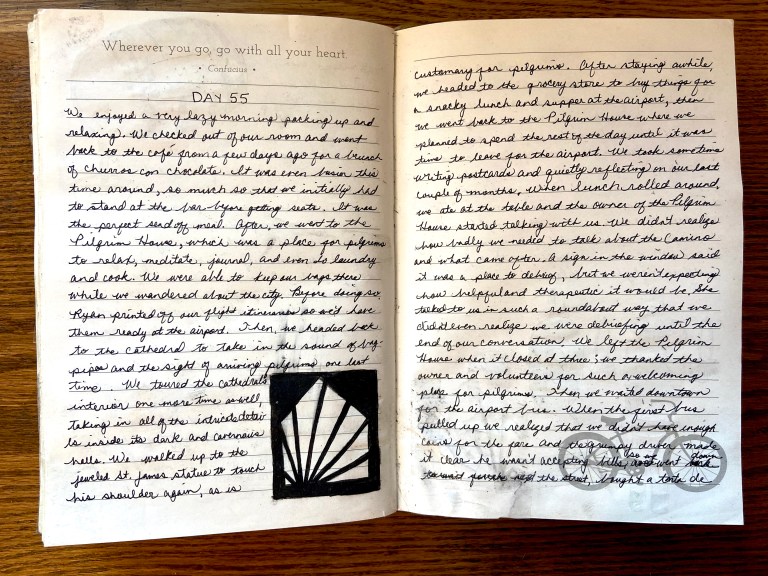 Wherever you go, go with all your heart.
• Confucius •
DAY 55
We enjoyed a very lazy morning packing up and
relaxing. We checked out of our room and went
back to the café from a few days ago for a brunch
of churros con chocolate. It was even busier this
time around, so much so that we initially had
to stand at the bar before getting seats. It was
the perfect send off meal. After, we went to the
Pilgrim House, which was a place for pilgrims
to relax, meditate, journal, and even do laundry
and cook. We were able to keep our bags there
while we wandered about the city. Before doing so,
Ryan printed off our flight itineraries so we'd have
them ready at the airport. Then, we headed back
to the cathedral to take in the sound of bag-
pipes and the sight of arriving pilgrims one last
time. We toured the cathedrals
interior one more time as well,
taking in all of the intricate detai-
ls inside its dark and cavernous
halls. We walked up to the
jeweled St. James statue to touch
his shoulder again, as is
customary for pilgrims. After staying awhile,
we headed to the grocery store to buy things for
a snacky lunch and supper at the airport, then
we went back to the Pilgrim House where we
planned to spend the rest of the day until it was
time to leave for the airport. We took sometime
writing postcards and quietly reflecting on our last
couple of months. When lunch rolled around,
we ate at the table and the owner of the Pilgrim
House started talking with us. We didn't realize
how badly we needed to talk about the Camino
and what came after. A sign in the window said
it was a place to debrief, but we weren't expecting
how helpful and therapeutic it would be. She
talked to us in such a roundabout way that we
didn't even realize we were debriefing until the
end of our conversation. We left the Pilgrim
House when it closed at three; we thanked the
owner and volunteers for such a welcoming
place for pilgrims. Then we waited downtown
for the airport bus. When the first bus
pulled up we realized that we didn't have enough
coins for the fare and the grumpy driver made
it clear he wasn't accepting bills, so we went down
the street, bought a tarta de